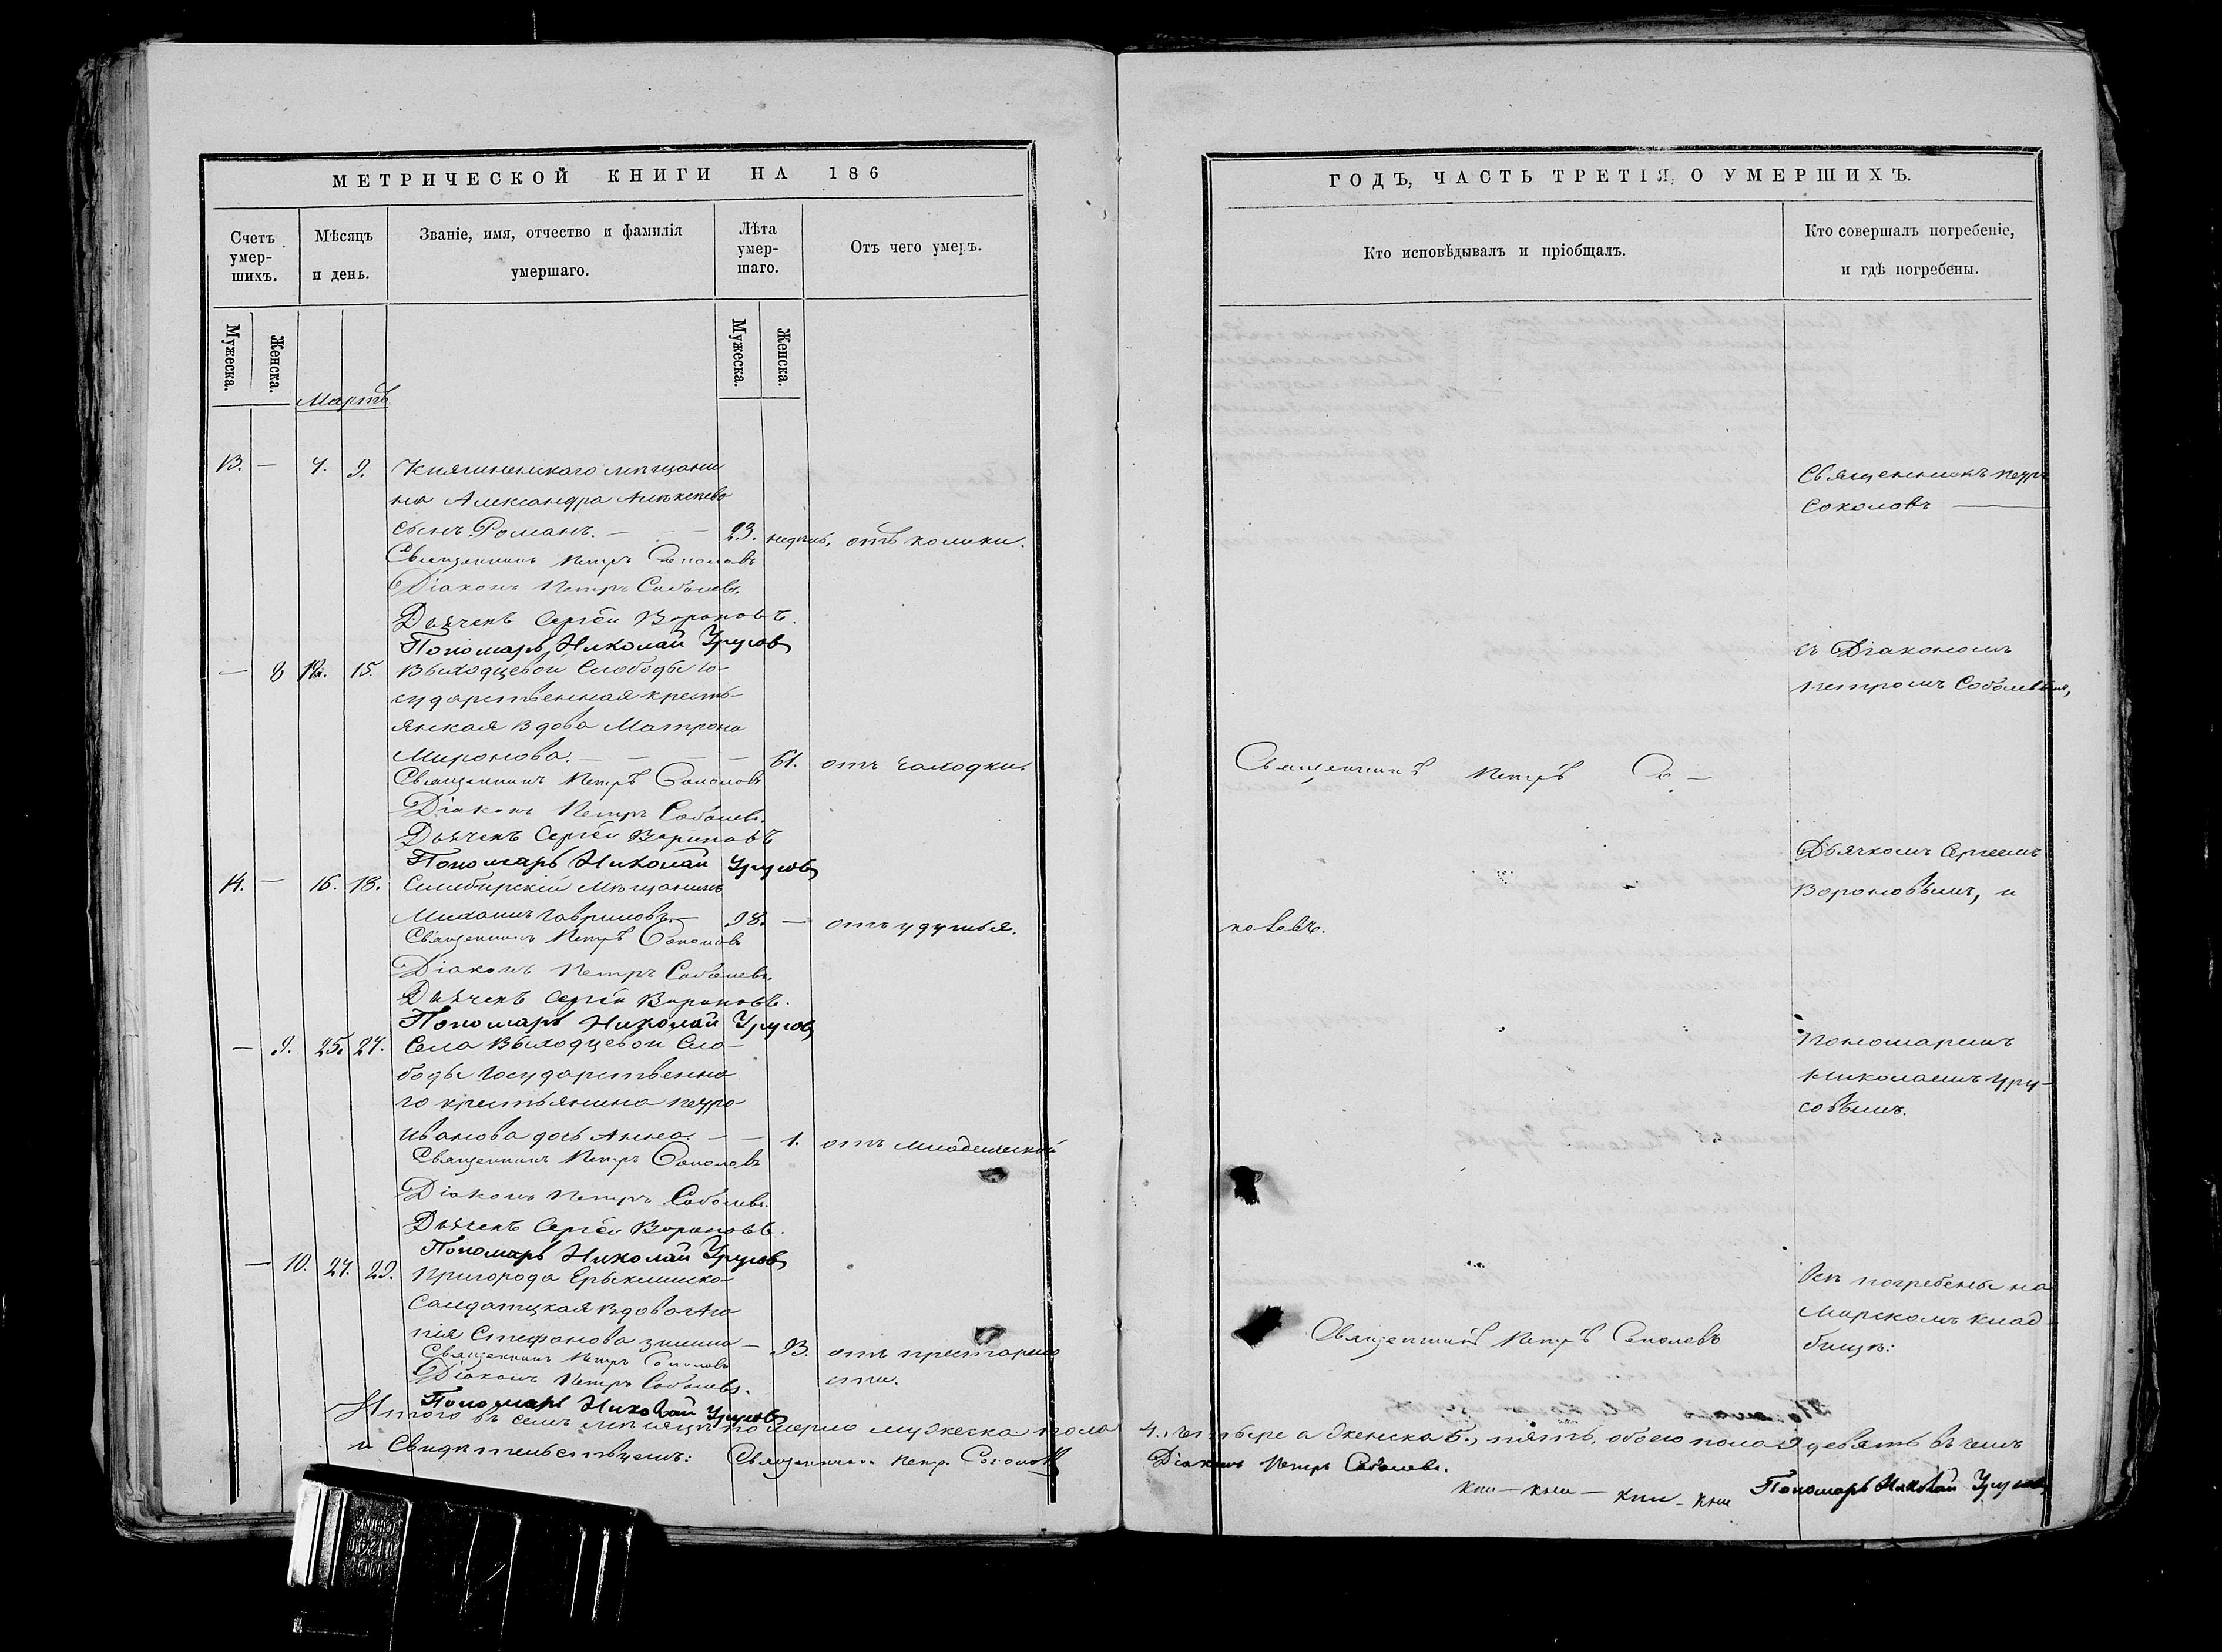 МЕТРИЧЕСКОЙ КНИГИ НА 186
Счетъ умер-шихъ.
Мѣсяцъ и день.
Званіе, имя, отчество и фамилія умершаго.
Лѣта умер-шаго.
Отъ чего умеръ.
Мужеска.
Женска.
Мужеска.
Женска.
Мартъ
13. — 7. 9. Княгининскаго мѣщани
на Александра Алѣксѣева
сынъ Романъ. — 23. недѣль, отъ колики.
Священникъ Петръ Соколовъ
Діаконъ Петръ Соболевъ.
Дьячекъ Сергѣй Вороновъ.
Пономарь Николай Урусовъ
— 8 12. 15. Выходцевой Слободы Го-
сударственная кресть-
янская вдова Матрона
Миронова. — — — — 61. отъ чаходки.
Священникъ Петръ Соколовъ
Діаконъ Петръ Соболевъ.
Дьячекъ Сергѣй Вороновъ
Пономарь Николай Урусовъ
14. — 16. 18. Симбирскій Мѣщанинъ
Михаилъ Гавриловъ. — 98. — отъ удушья.
Священникъ Петръ Соколовъ
Діаконъ Петръ Соболевъ.
Дьячекъ Сергѣй Вороновъ.
Пономарь Николай Урусовъ
— 9. 25. 27. Села Выходцевой Сло-
боды Государственна
го крестьянина Петра
Иванова дочь Анна. — — 1. отъ младенческой
Священникъ Петръ Соколовъ
Діаконъ Петръ Соболевъ.
Дьячекъ Сергѣй Вороновъ.
Пономарь Николай Урусовъ
— 10. 27. 29. Пригорода Ерыклинска
Салдатская вдова
Стефанова — 93. отъ престарело
сти.
Священникъ Петръ Соколовъ
Діаконъ Петръ Соболевъ.
Пономарь Николай Урусовъ
Итого въ семъ мѣсяцѣ померло мужеска пола
и Свидѣтельствуемъ: Священникъ Петръ Соколовъ
ГОДЪ, ЧАСТЬ ТРЕТІЯ, О УМЕРШИХЪ.
Кто исповѣдывалъ и пріобщалъ.
Кто совершалъ погребеніе,
и гдѣ погребены.
Священникъ Петръ
Соколовъ —
съ Діакономъ
Петромъ Соболевымъ,
Священникъ Петръ Со —
Дьячкомъ Сергеемъ
Вороновымъ, и
коловъ.
Пономаремъ
Николаемъ Уру-
совымъ.
Всѣ погребены на
Мирскомъ клад-
бищѣ:
Священникъ Петръ Соколовъ
4., четыре а женска 5., пять, обоего пола 9 девять въ чемъ
Діаконъ Петръ Соболевъ.
Пономарь Николай Урусовъ